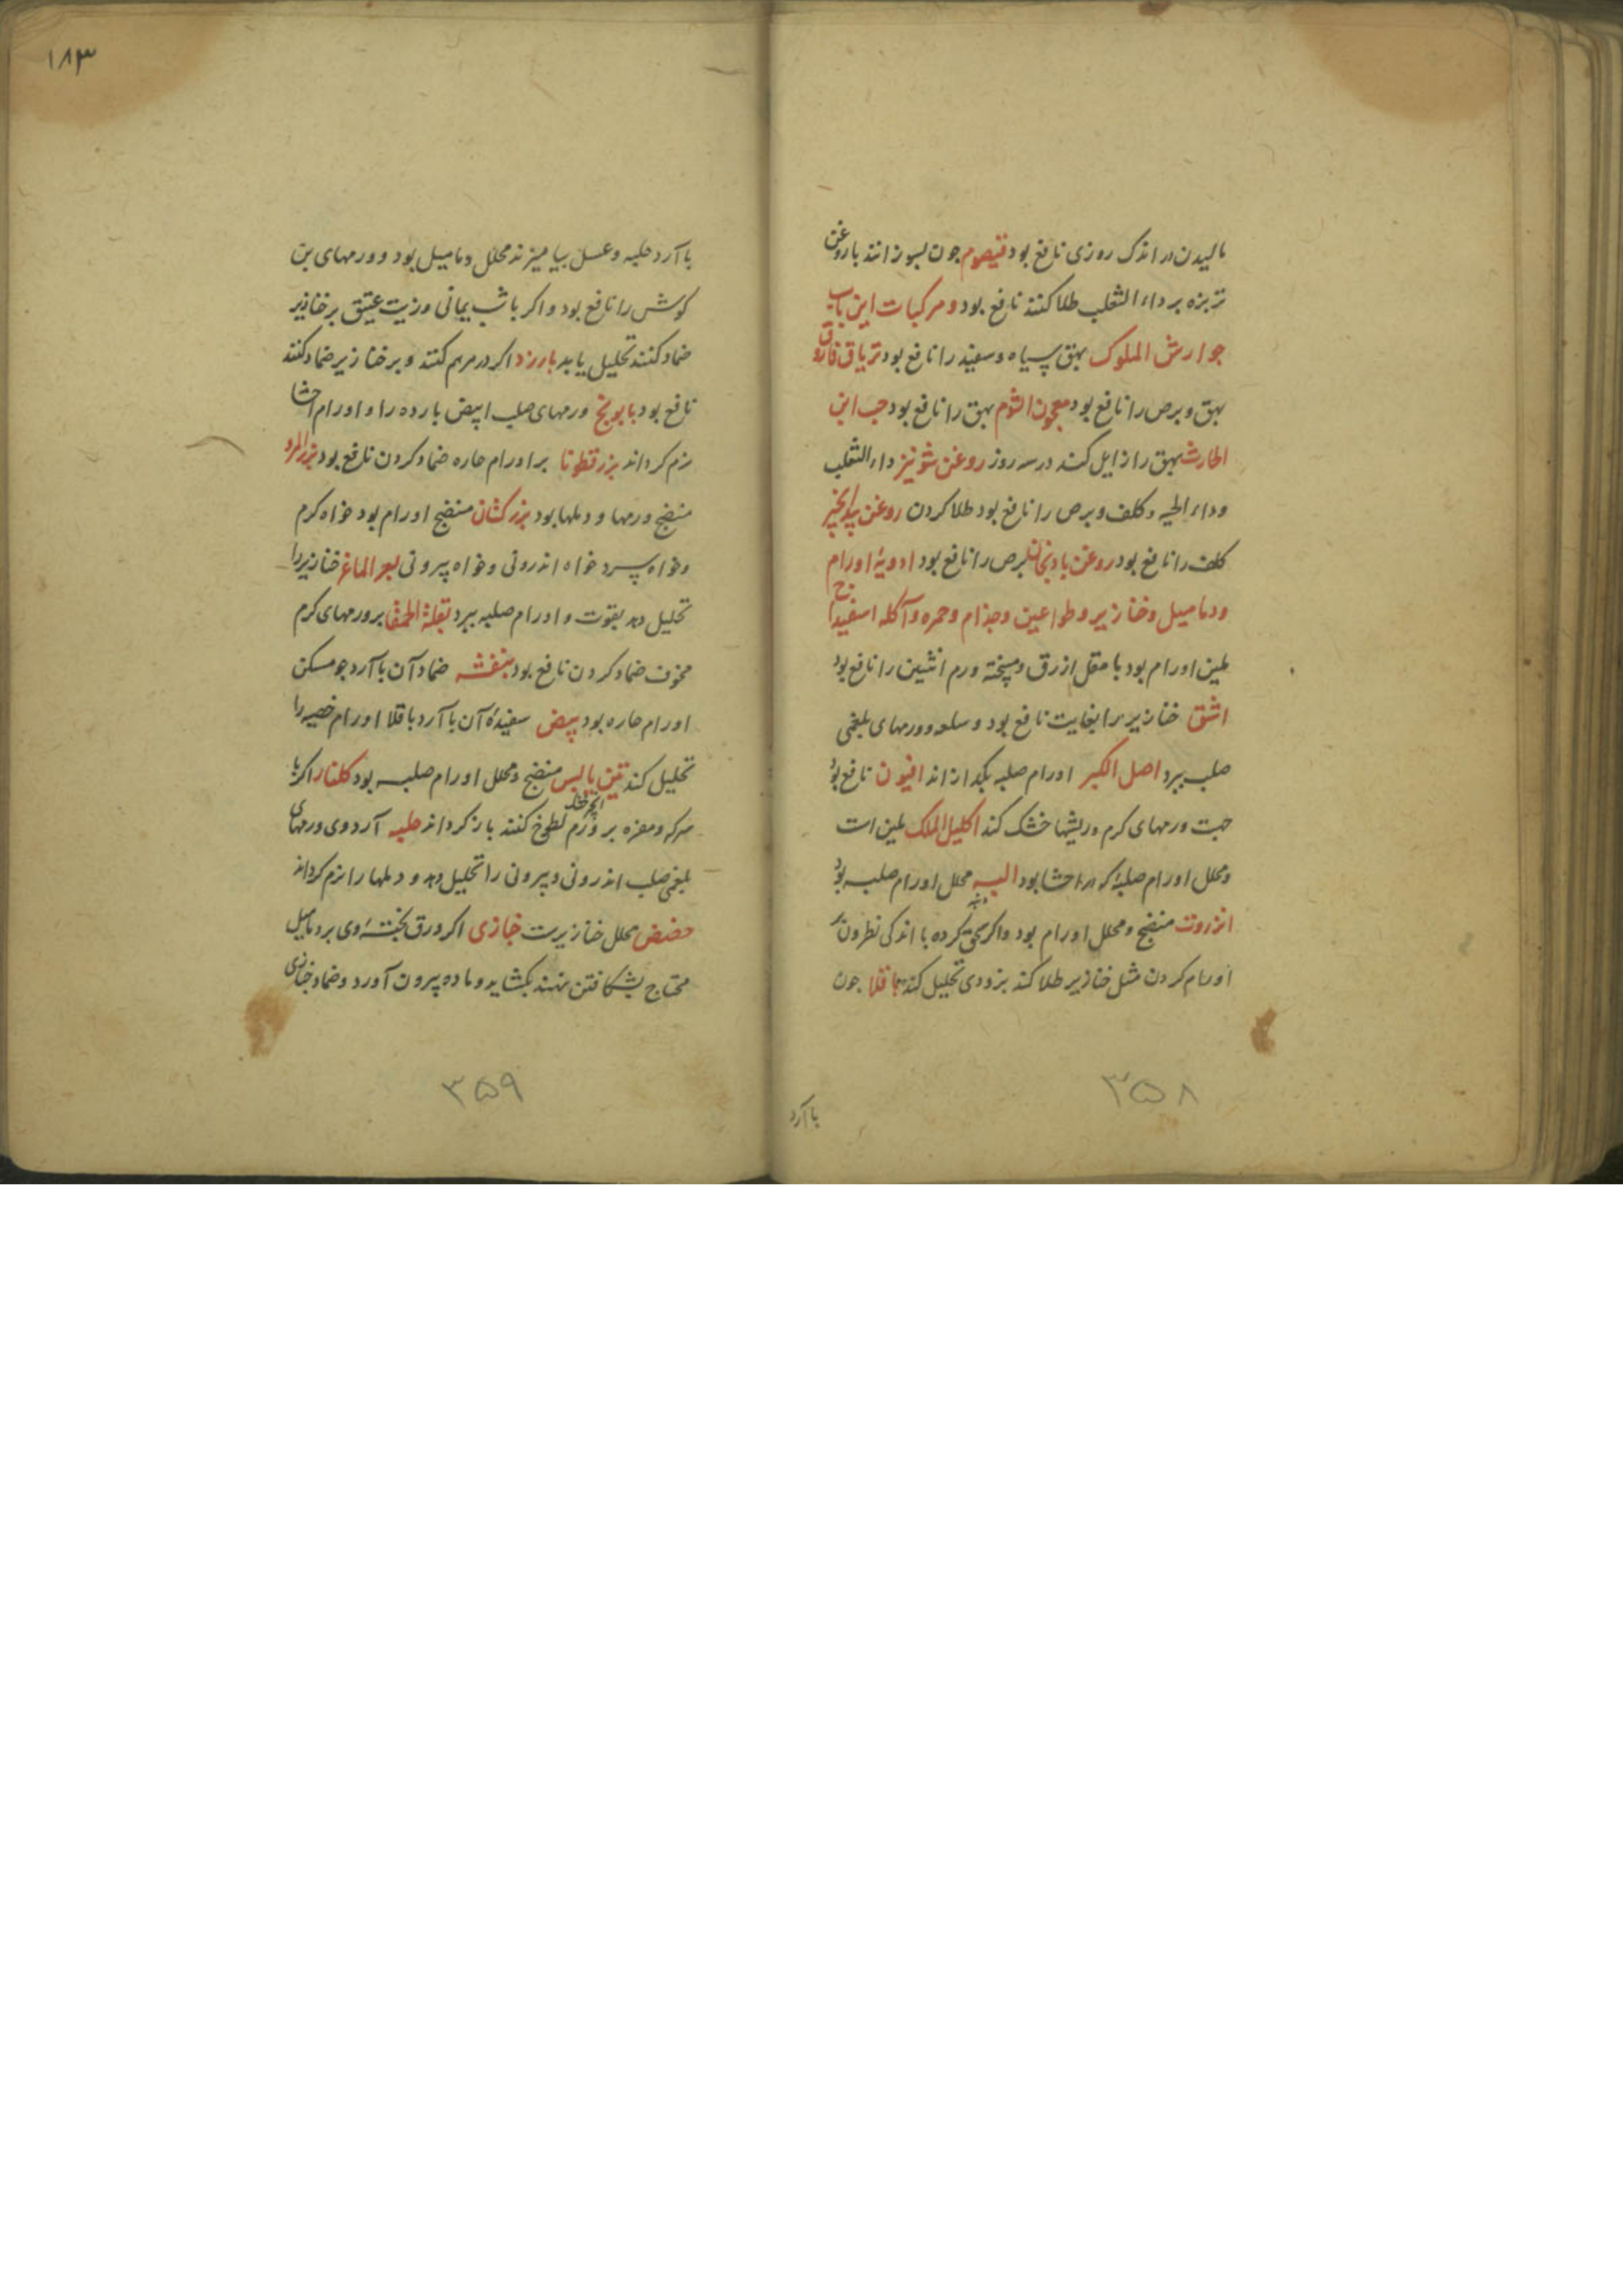 مالیدن در اندک روزی نافع بود قیصوم جون بسوزانند با روغن
تربزه بر داء الثعلب طلا کنند نافع بود و مرکبات این باب
جوارش الملوک بهق سیاه و سفید را نافع بود تریاق فاروق
بهق و برص را نافع بود معجون الثوم بهق را نافع بود حب ابن
الحارث بهق را زایل کند در سه روز روغن شونیز داء الثعلب
و داء الحیه و کلف و برص را نافع بود طلا کردن روغن
کلف را نافع بود روغن بادنجان برص را نافع بود ادویهٔ اورام
و دمامیل و خنازیر و طواعین و جذام و حمره و آکله اسفیداج
ملین اورام بود با مقل ازرق و میپخته ورم انثیین را نافع بود
اشق خنازیر را بغایت نافع بود و سلعه و ورمهای بلغمی
صلب ببرد اصل الکبر اورام صلبه بکدازاند افیون نافع بود
جهت ورمهای کرم و ریشها خشک کند اکلیل الملک ملین است
و محلل اورام صلبهٔ که در احشا بود الیه محلل اورام صلبه بود
انزروت منضج و محلل اورام بود و اکر سحق کرده با اندکی نطرون بر
اورام کردن مثل خنازیر طلا کند بزودی تحلیل کند باقلا جون
با آرد
۳۵۸
۱۸۳
با آرد حلبه و عسل بیامیزند محلل دمامیل بود و ورمهای بن
کوش را نافع بود و اکر با شب یمانی و زیت عتیق بر خنازیر
ضماد کنند تحلیل یابد بارزد اکر در مرهم کنند و بر خنازیر ضماد کنند
نافع بود بابونج ورمهای صلب ابیض بارده را و اورام احشا
نرم کرداند بزرقطونا بر اورام حاره ضماد کردن نافع بود بزر المرو
منضج ورمها و دملها بود بزر کتان منضج اورام بود خواه کرم
و خواه سرد خواه اندرونی و خواه بیرونی بعر الماعز خنازیر را
تحلیل دهد بقوت و اورام صلبه ببرد بقلة الحمقا بر ورمهای کرم
مخوف ضماد کردن نافع بود بنفشه ضماد آن با آرد جو مسکن
اورام حاره بود بیض سفیدهٔ آن با آرد باقلا اورام خصیه را
تحلیل کند تین یابس انجیر خشک منضج و محلل اورام صلبه بود کلنار اکر با
سرکه و مغره بر ورم لطوخ کنند باز کرداند حلبه آرد وی ورمهای
بلغمی صلب اندرونی و بیرونی را تحلیل دهد و دملها را نرم کرداند
حضض محلل خنازیرست خبازی اکر ورق پختهٔ وی بر دمامیل
محتاج بشکافتن نهند بکشاید و ماده بیرون آورد و ضماد خبازی
۳۵۹